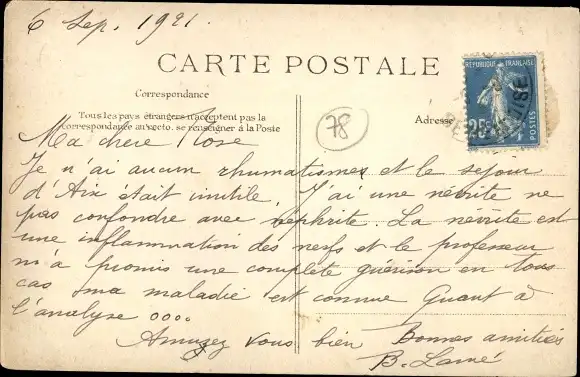 6 Sep. 1921.
CARTE POSTALE
RÉPUBLIQUE FRANÇAISE
25c
POSTES
Correspondance
Tous les pays étrangers n'acceptent pas la
correspondance au recto. se renseigner à la Poste
Adresse
78
Ma chère Rose
Je n'ai aucun rhumatismes et le séjour
d'Aix était inutile. J'ai une névrite ne
pas confondre avec néphrite. La névrite est
une inflammation des nerfs et le professeur
m'a promis une complète guérison en tous
cas ma maladie est connue Quant à
l'analyse oooo
Amusez vous bien Bonnes amitiés
B. Lamé